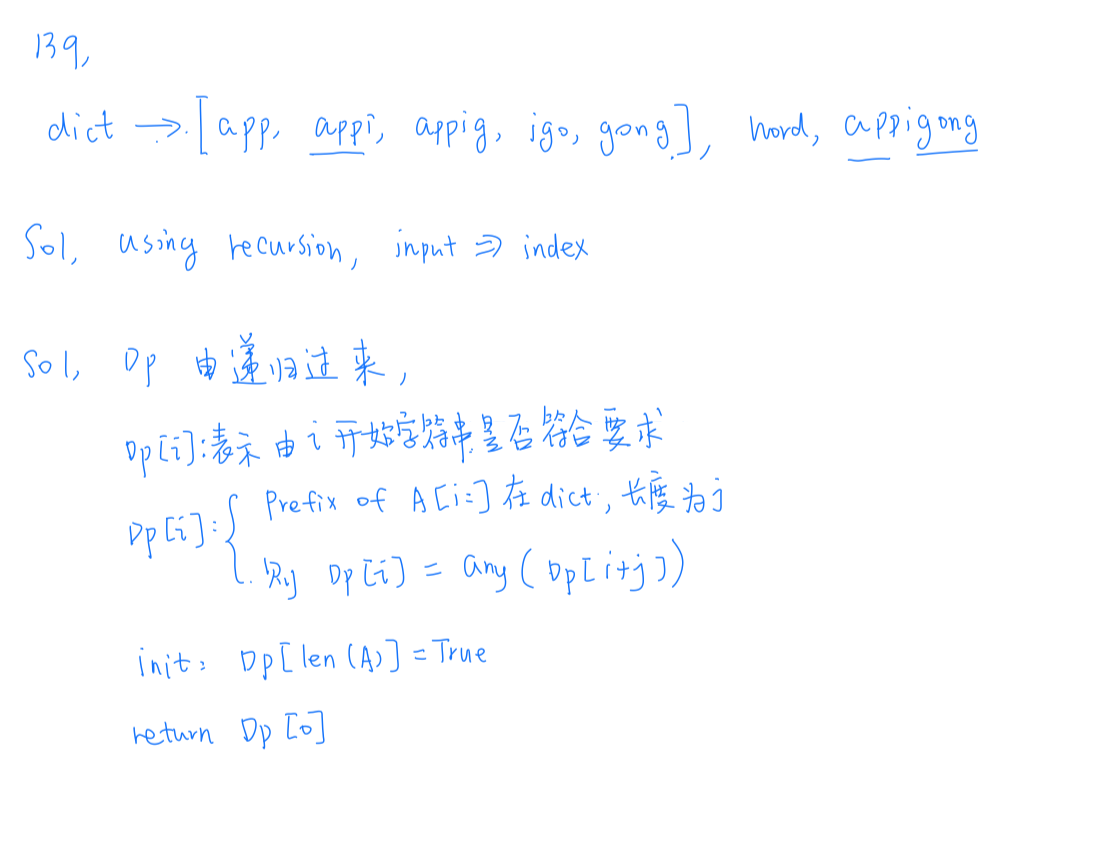 139,
dict → [app, appi, appig, igo, gong], word, appigong
Sol, using recursion, input ⇒ index
Sol, Dp 由递归过来,
Dp[i]:表示由i开始字符串是否符合要求
Dp[i]:{ Prefix of A[i:] 在dict, 长度为j
则 Dp[i] = any(Dp[i+j])
init: Dp[len(A)] = True
return Dp[0]